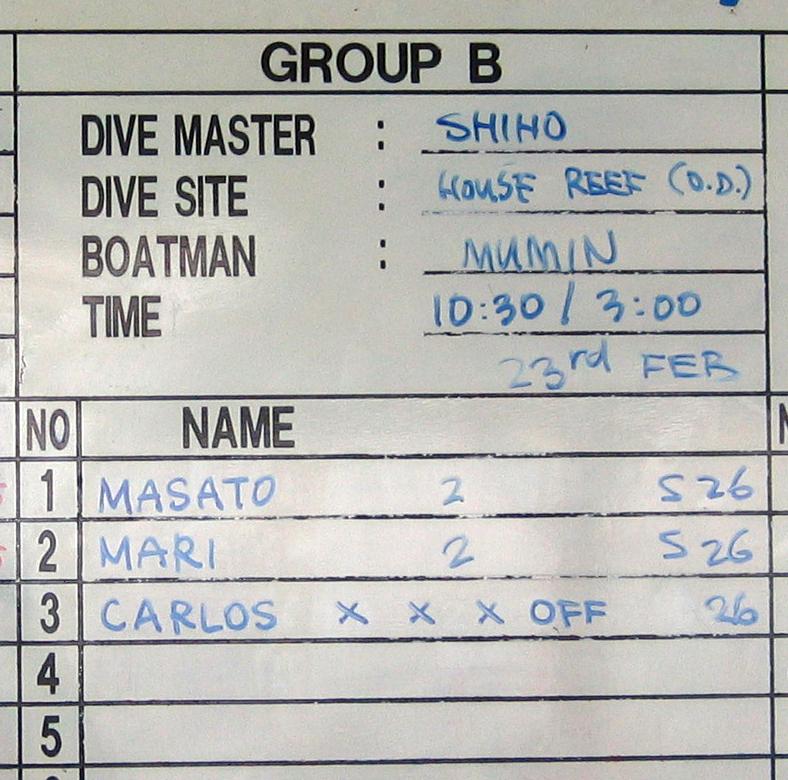 GROUP B
DIVE MASTER : SHIHO
DIVE SITE : HOUSE REEF (O.D.)
BOATMAN : MUMIN
TIME 10:30 / 3:00
23rd FEB
NO NAME
1 MASATO 2 S 26
2 MARI 2 S 26
3 CARLOS x x x OFF 26
4
5